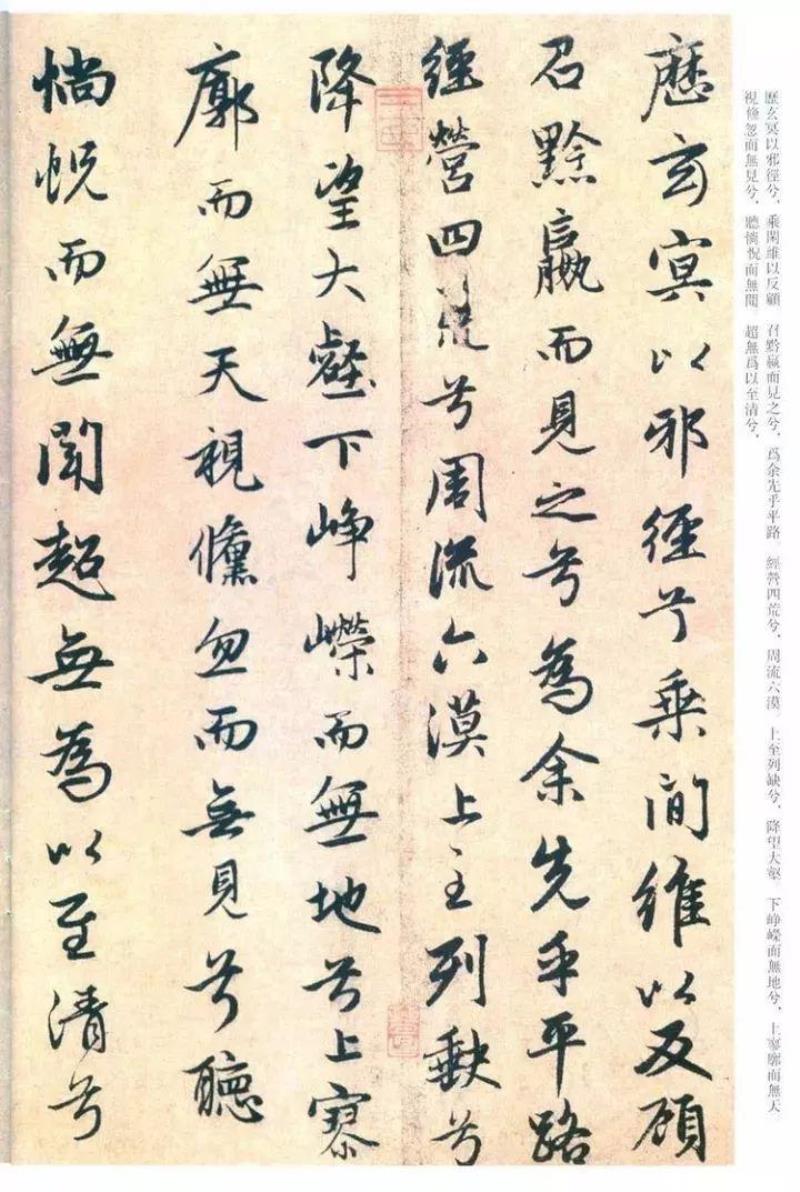 歷玄冥以邪徑兮，乘閒維以反顧 召黔嬴而見之兮，爲余先乎平路 經營四荒兮，周流六漠 上至列缺兮，降望大壑 下崢嶸而無地兮，上寥廓而無天
視倏忽而無見兮，聽惝怳而無聞 超無爲以至清兮，
歷玄冥以邪徑兮乘間維以反顧
召黔嬴而見之兮為余先乎平路
經營四荒兮周流六漠上至列缺兮
降望大壑下崢嶸而無地兮上寥
廓而無天視儵忽而無見兮聽
惝怳而無聞超無為以至清兮